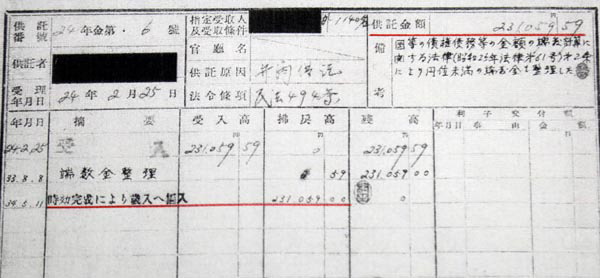 供託番號 24年金第・6號
指定受取人及受取條件 1140名
供託金額 231,059 59
官廳名
供託者
供託原因 弁済供託
備考 国等の債権債務等の金額の端数計算に
関する法律(昭和25年法律第61号)第2条
により円位未満の端数金を整理した
受理年月日 24年2月25日
法令條項 民法494条
年月日 摘要 受入高 拂戻高 残高 利子交付額
年月日 事由 金額
24.2.25 受入 231,059 59 0 231,059 59
33.8.8 端数金整理 59 231,059 00
34.5.11 時効完成により歳入へ組入 231,059 00 0